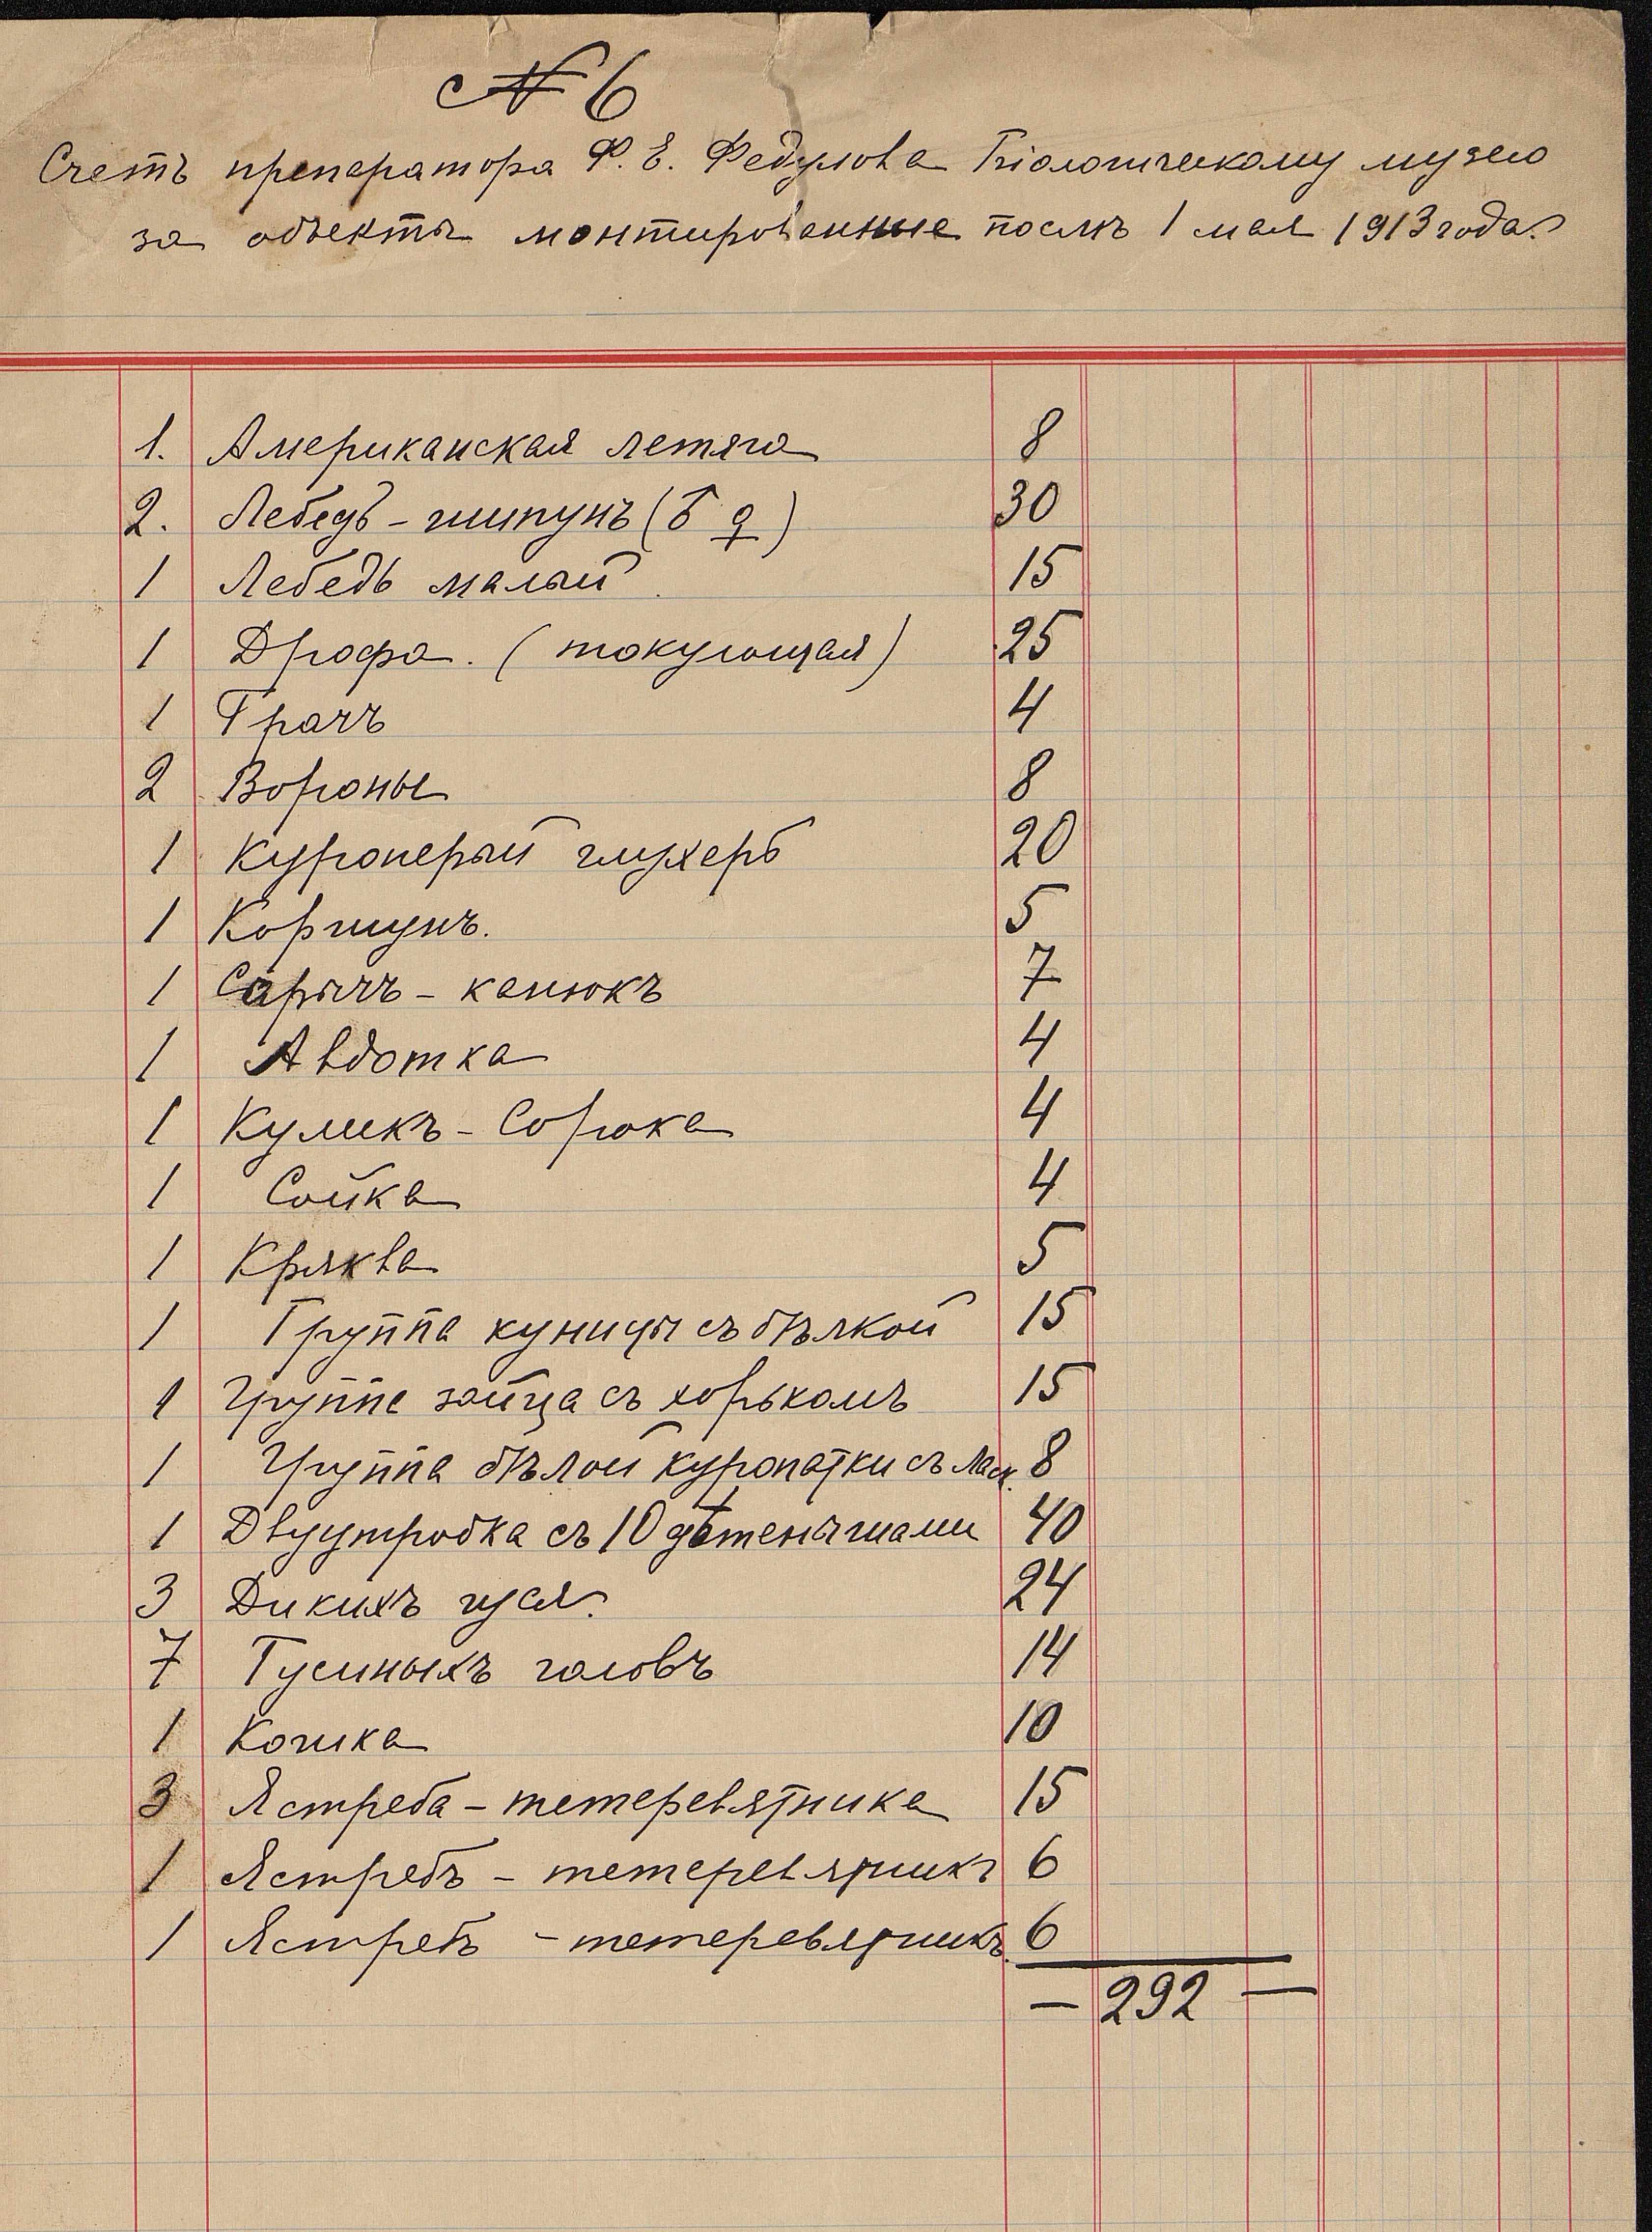 № 6
Счетъ препаратора Ф. Е. Федулова Біологическому музею
за объекты монтированные послѣ 1 мая 1913 года.
1. Американская летяга 8
2. Лебедь-шипунъ (♂ ♀) 30
1 Лебедь малый 15
1 Дрофа. (токующая) 25
1 Грачъ 4
2 Вороны 8
1 Куроперый глухарь 20
1 Коршунъ. 5
1 Сарычъ - канюкъ 7
1 Авдотка 4
1 Куликъ - Сорока 4
1 Сойка 4
1 Кряква 5
1 Группа куницы съ бѣлкой 15
1 Группа зайца съ хорькомъ 15
1 Группа бѣлой куропатки съ Ласк. 8
1 Двуутробка съ 10 дѣтенышами 40
3 Дикихъ гуся. 24
7 Гусиныхъ головъ 14
1 Кошка 10
3 Ястреба - тетеревятника 15
1 Ястребъ - тетеревятникъ 6
1 Ястребъ - тетеревятникъ. 6
— 292 —